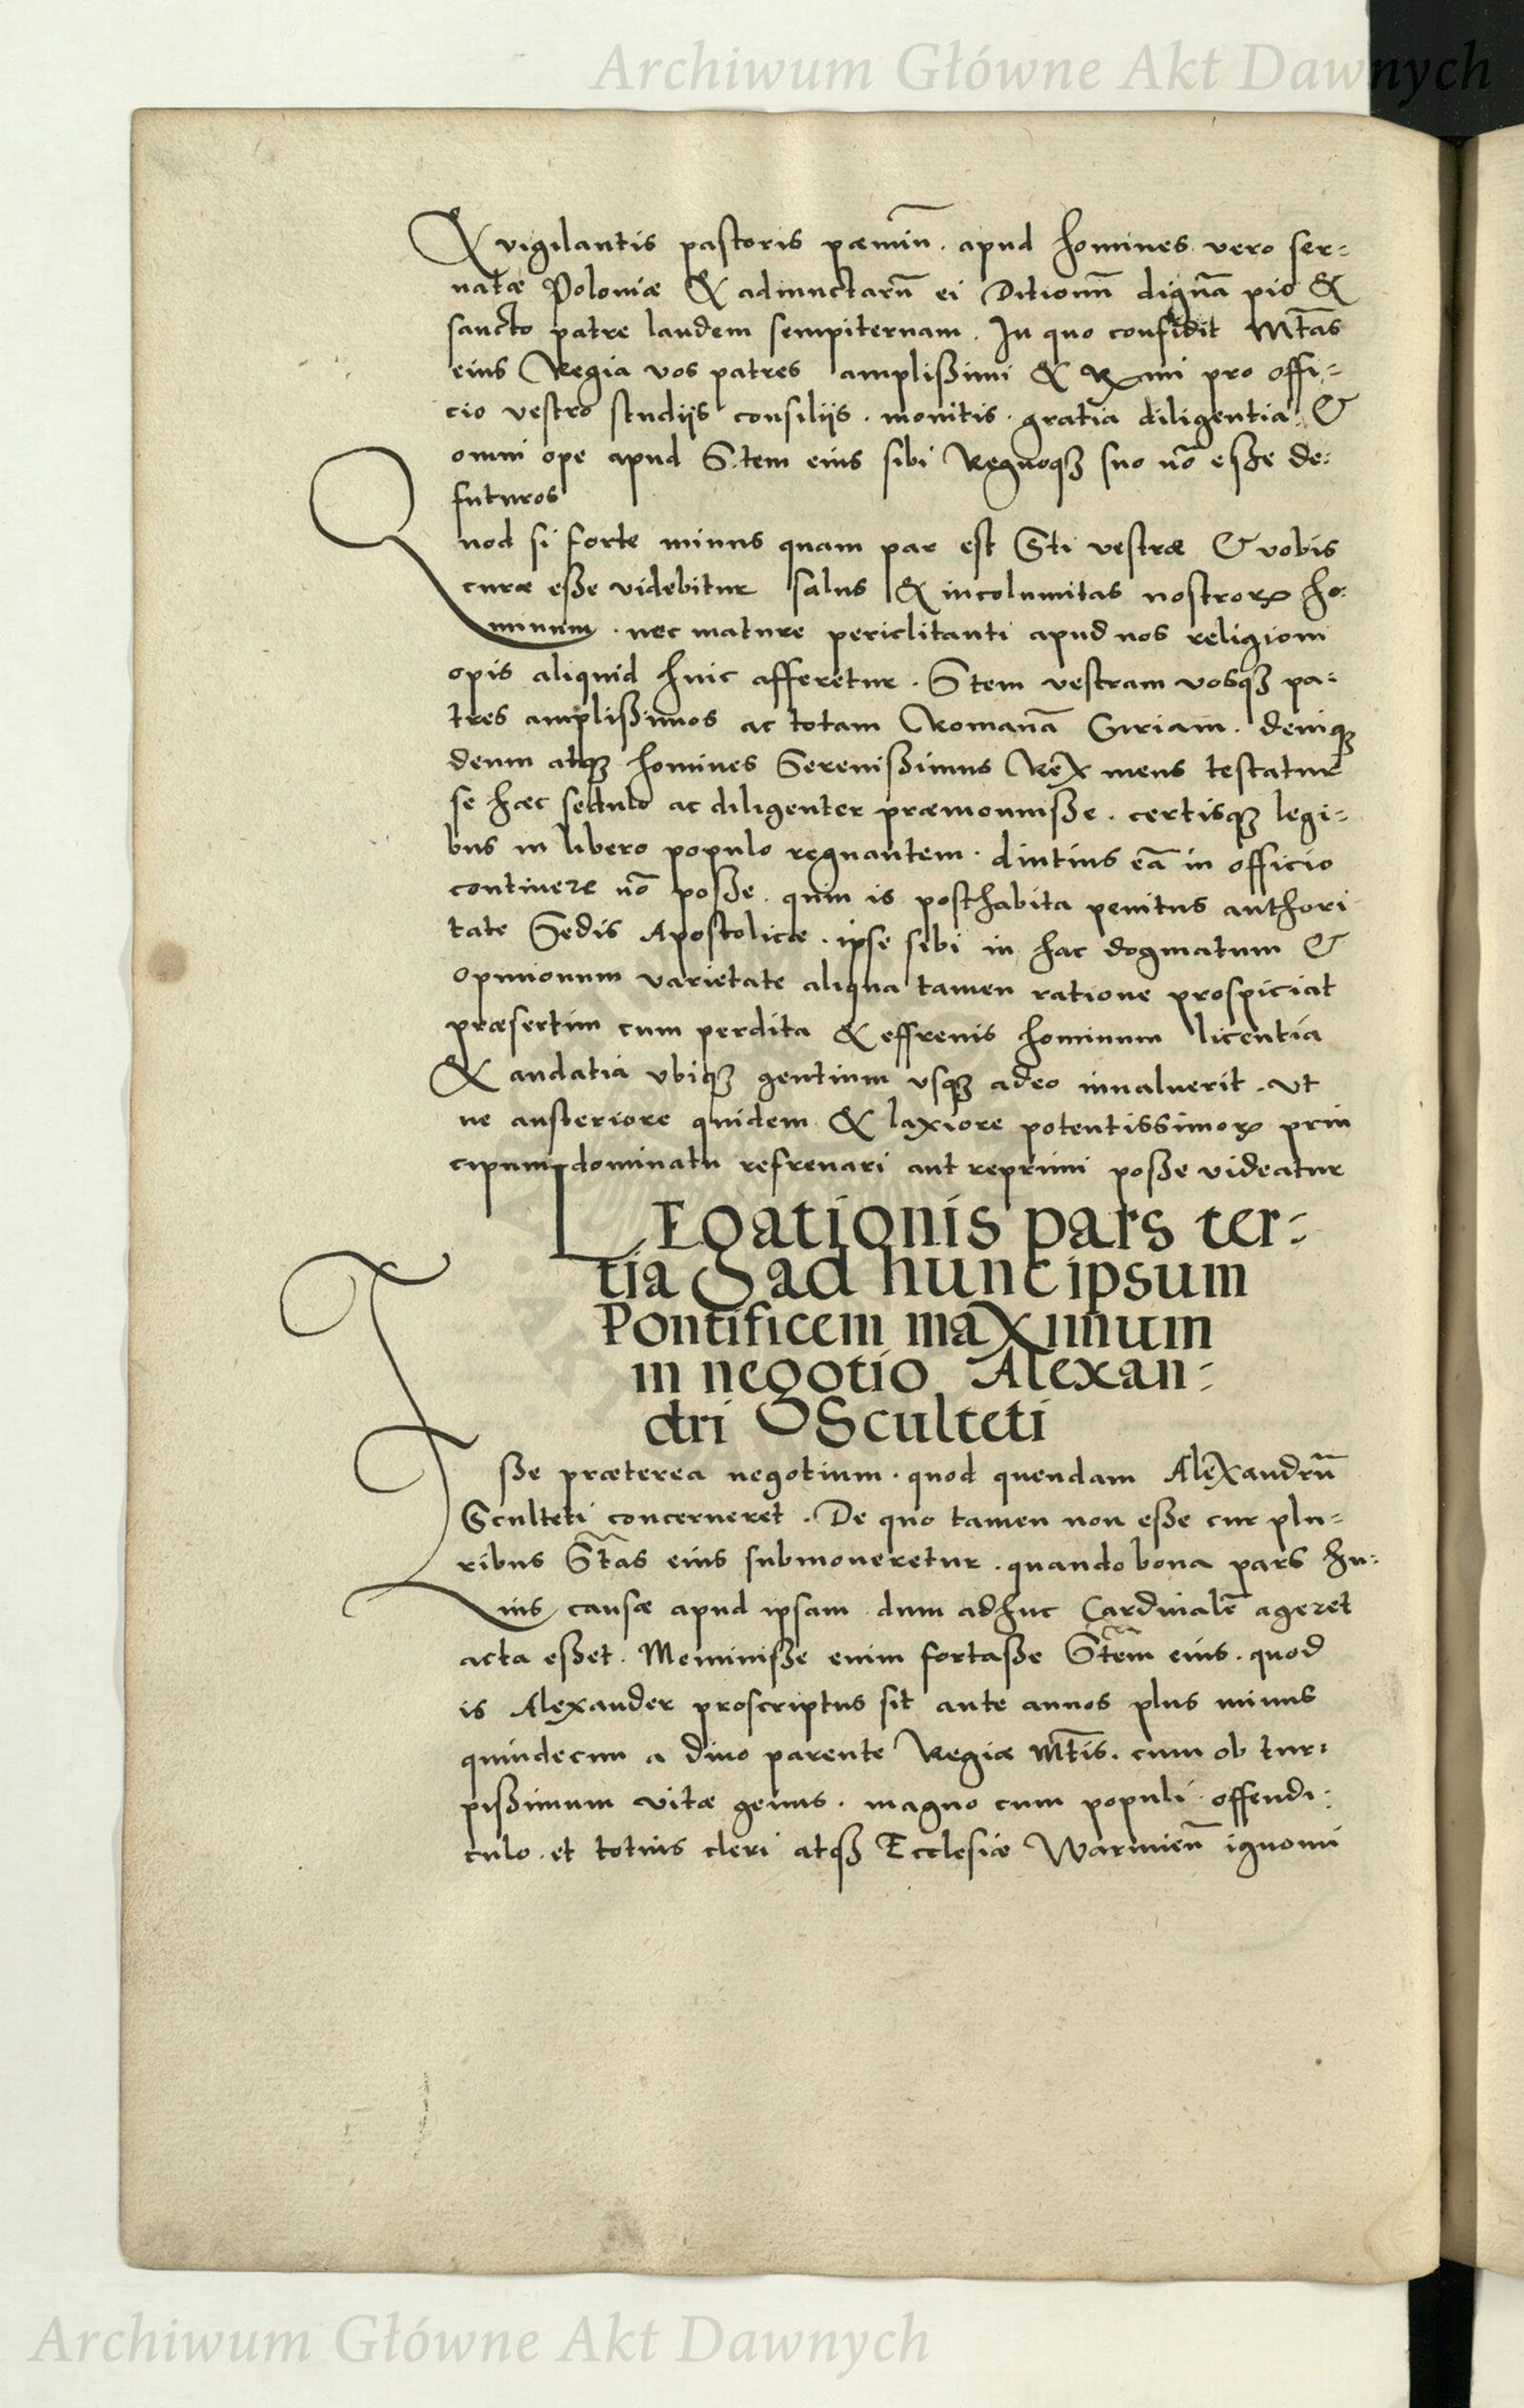 Archiwum Główne Akt Dawnych
& vigilantis pastoris præmiũ. apud homines vero ser-
uatæ Poloniæ & adiunctarũ ei Ditionũ dignã pio &
sancto patre laudem sempiternam. In quo confidit Mtas
eius Regia vos patres amplißimi & Rmi pro offi-
cio vestro studijs consilijs. monitis. gratia diligentia &
omni ope apud S.tem eius sibi Regnoqȝ suo nõ eße de-
futuros
Quod si forte minus quam par est Sti vestræ & vobis
curæ eße videbitur salus & incolumitas nostroꝝ ho-
minum. nec mature periclitanti apud nos religioni
opis aliquid huic afferetur. Stem vestram vosqȝ pa-
tres amplißimos ac totam Romanã Curiam. deniqȝ
deum atqȝ homines Serenißimus Rex meus testatur
se hæc sedulo ac diligenter præmonuiße. certisqȝ legi-
bus in libero populo regnantem. diutius eã in officio
continere nõ poße. quin is posthabita penitus authori
tate Sedis Apostolicæ. ipse sibi in hac dogmatum &
opinionum varietate aliqua tamen ratione prospiciat
præsertim cum perdita & effrenis hominum licentia
& audatia vbiqȝ gentium vsqȝ adeo inualuerit. vt
ne austeriore quidem & laxiore potentissimoꝝ prin
cipum dominatu refrenari aut reprimi poße videatur
LEgationis pars ter-
tia ad hunc ipsum
Pontificem maximum
in negotio Alexan-
dri Sculteti
Eße præterea negotium. quod quendam Alexandrũ
Sculteti concerneret. De quo tamen non eße cur plu-
ribus Stas eius submoueretur. quando bona pars hu-
ius causæ apud ipsam dum adhuc Cardinalẽ ageret
acta eßet. Meminiße enim fortaße Stem eius. quod
is Alexander proscriptus sit ante annos plus minus
quindecim a diuo parente Regiæ Mtis. cum ob tur-
pißimum vitæ genus. magno cum populi offendi-
culo. et totius cleri atqȝ Ecclesiæ Warmieñ ignomi
Archiwum Główne Akt Dawnych